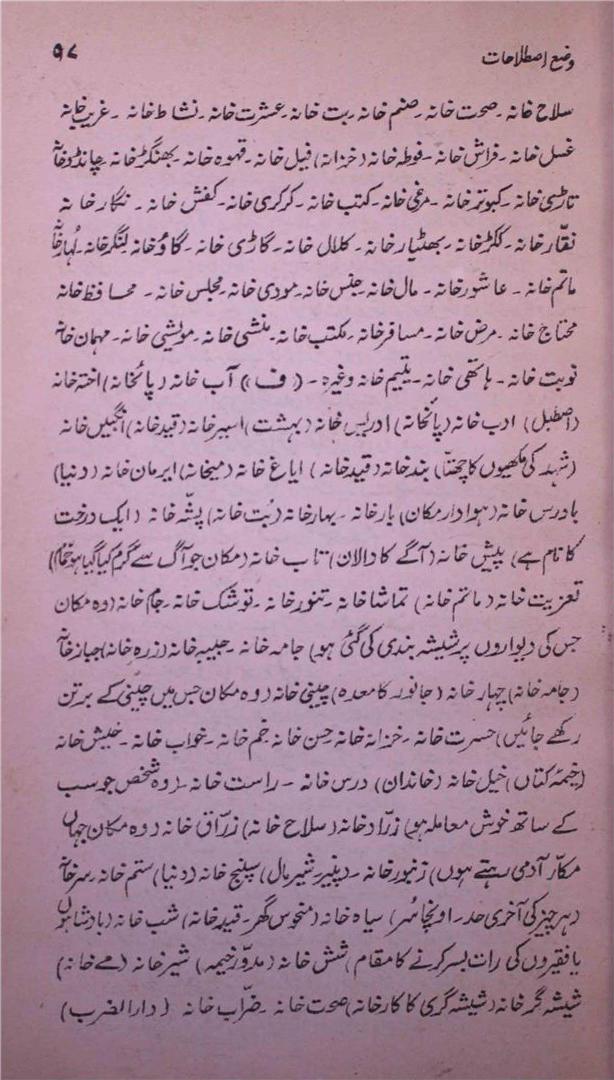 وضع اصطلاحات ۹۷
سلاح خانہ۔ صحت خانہ۔ صنم خانہ۔ بت خانہ۔ عشرت خانہ۔ نشاط خانہ۔ غریب خانہ
غسل خانہ۔ فراش خانہ۔ فوطہ خانہ (خزانہ) فیل خانہ۔ قہوہ خانہ۔ بھنگڑ خانہ۔ چانڈو خانہ
تاڑی خانہ۔ کبوتر خانہ۔ مرغی خانہ۔ کتب خانہ۔ کرکری خانہ۔ کفش خانہ۔ نگار خانہ
نقّار خانہ۔ ککڑ خانہ۔ بھٹیار خانہ۔ کلال خانہ۔ گاڑی خانہ۔ گاؤ خانہ۔ لنگر خانہ۔ لہار خانہ
ماتم خانہ۔ عاشور خانہ۔ مال خانہ۔ جنس خانہ۔ مودی خانہ۔ مجلس خانہ۔ محافظ خانہ
محتاج خانہ۔ مرض خانہ۔ مسافر خانہ۔ مکتب خانہ۔ منشی خانہ۔ مویشی خانہ۔ مہمان خانہ
نوبت خانہ۔ ہاتھی خانہ۔ یتیم خانہ وغیرہ۔ (ف) آب خانہ (پائخانہ) اختہ خانہ
(اصطبل) ادب خانہ (پائخانہ) ادریس خانہ (بہشت) اسیر خانہ (قید خانہ) انگبیں خانہ
(شہد کی مکھیوں کا چھتّا) بند خانہ (قید خانہ) ایاغ خانہ (میخانہ) ایرمان خانہ (دنیا)
بادرس خانہ (ہوادار مکان) بار خانہ۔ بہار خانہ (بُت خانہ) پشّہ خانہ (ایک درخت
کا نام ہے) پیش خانہ (آگے کا دالان) تاب خانہ (مکان جو آگ سے گرم کیا گیا ہو حمّام)
تعزیت خانہ (ماتم خانہ) تماشا خانہ۔ تنور خانہ۔ توشک خانہ۔ جام خانہ (وہ مکان
جس کی دیواروں پر شیشہ بندی کی گئی ہو) جامہ خانہ۔ جیبہ خانہ (زرہ خانہ) جہاز خانہ
(جامہ خانہ) چہار خانہ (جانور کا معدہ) چینی خانہ (وہ مکان جس میں چینی کے برتن
رکھے جائیں) حسرت خانہ۔ خزانہ خانہ خسن خانہ خم خانہ۔ خواب خانہ۔ خیش خانہ
(خیمۂ کتاں) خیل خانہ (خاندان) درس خانہ۔ راست خانہ۔ (وہ شخص جو سب
کے ساتھ خوش معاملہ ہو) زرّاد خانہ (سلاح خانہ) زرّاق خانہ (وہ مکان جہاں
مکّار آدمی رہتے ہوں) زنبور خانہ۔ (پنیر۔ شیرمال) سپنج خانہ (دنیا) ستم خانہ۔ سر خانہ
(ہر چیز کی آخری حد۔ اونچا سُر) سیاہ خانہ (منحوس گھر۔ قید خانہ) شب خانہ (بادشاہوں
یا فقیروں کی رات بسر کرنے کا مقام) شش خانہ (مدوّر خیمہ) شیر خانہ (مے خانہ)
شیشہ گر خانہ (شیشہ گری کا کارخانہ) صحت خانہ۔ ضرّاب خانہ (دار الضرب)